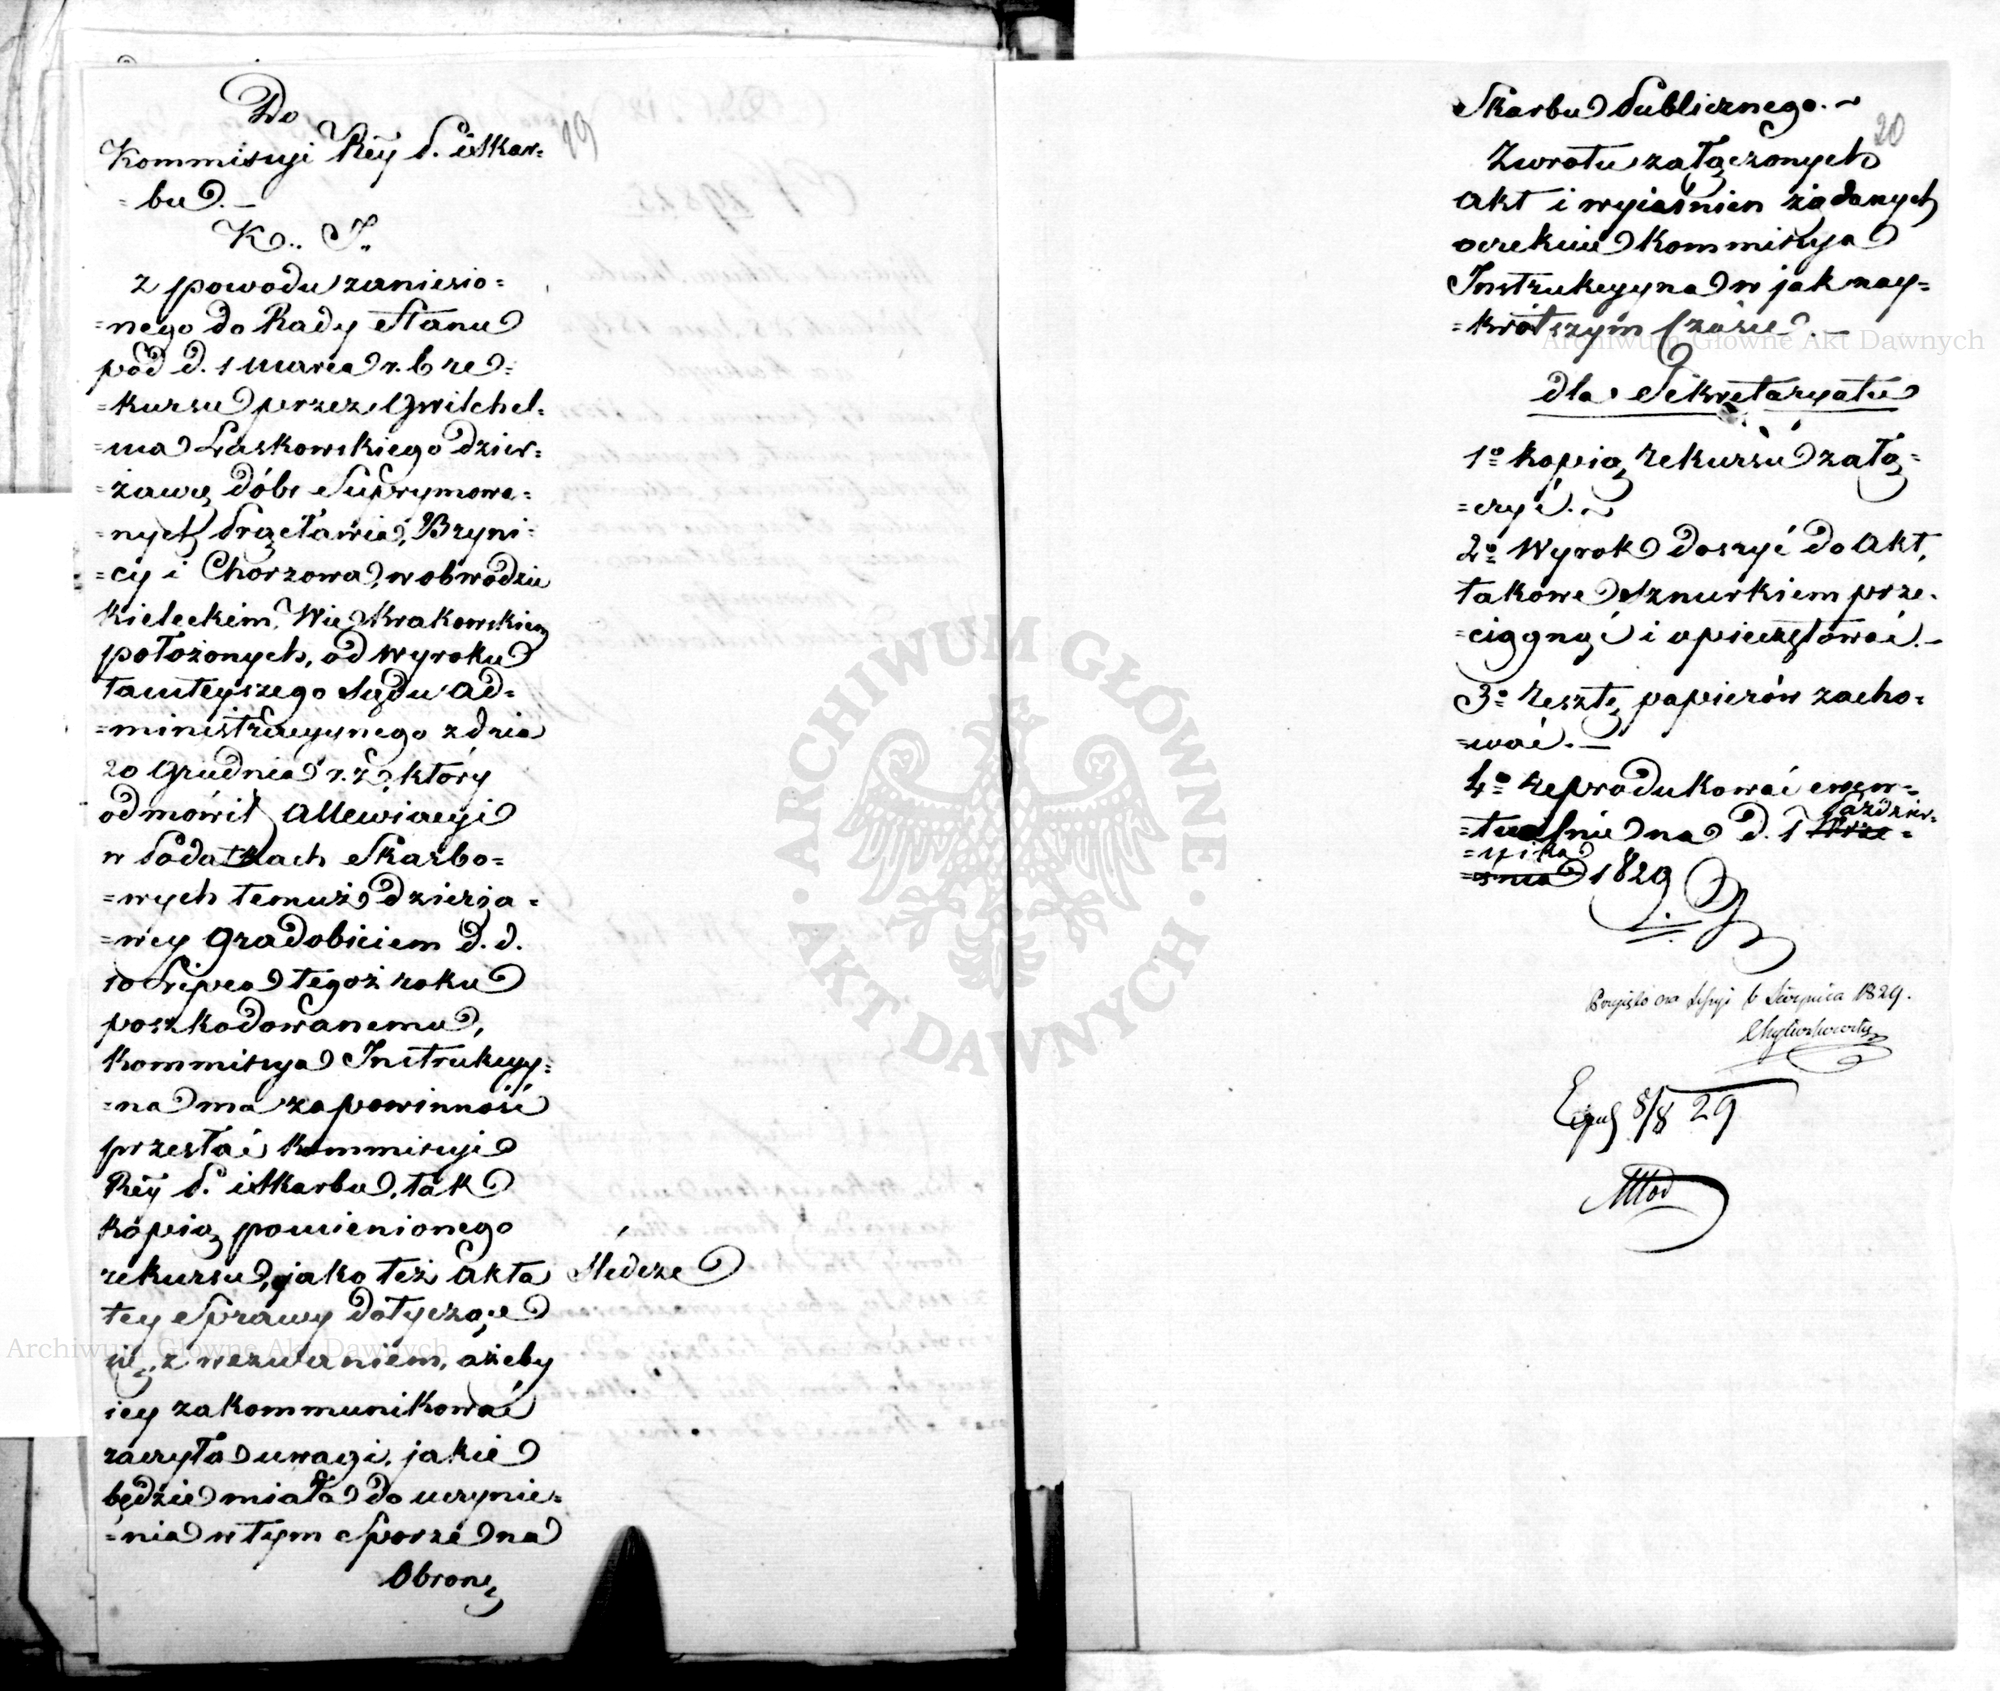 19
Do
Kommissyi Rẜy P. i Skar=
=bu. —
K. J.
z powodu zaniesio=
=nego do Rady Stanu
pod d. 1 Marca r. b re=
=kursu przez Gwilchel=
=ma Laskowskiego dzier=
=żawcę dóbr Suprymowa=
=nych Przęsławic, Bryni=
=cy i Chorzowa, w obwodzie
Kieleckim, Wie Krakowskim
położonych, od wyroku
tamteyszego Sądu Ad=
=ministracyynego z dnia
20 Grudnia r. z, który
odmówił Allewiacyi
w Podatkach Skarbo=
=wych temuż dzierża=
=wcy Gradobiciem d. d.
10 Lipca tegoż roku
poszkodowanemu,
Kommissya Instrukcyy=
=na ma za powinność
przesłać Kommissyi
Rẜy P. i Skarbu, tak
kopią pomienionego
rekursu, jako też Akta Śledcze
tey Sprawy dotyczące
się, z wezwaniem, ażeby
iey zakommunikować
raczyła uwagi, jakie
będzie miała do uczynie=
=nia w tym Sporze na
Obronę
20
Skarbu Publicznego. ~
Zwrotu załączonych
Akt i wyiaśnien żądanych
oczekuie Kommissya
Instrukcyyna w jak nay=
=krótszym Czasie.
dla Sekretaryatu
1o kopią rekursu załą=
=czyć. ~
2o Wyrok doszyć do Akt,
takowe Sznurkiem prze=
=ciągnąć i opieczętować. —
3o resztę papierów zacho=
=wać. —
4o reprodukować ewen=
=tualnie na d. 1 Wrze= aździer=
=śnia =nika 1829
Przyięto na Sessyi 6 Sierpnia 1829.
8/8 29